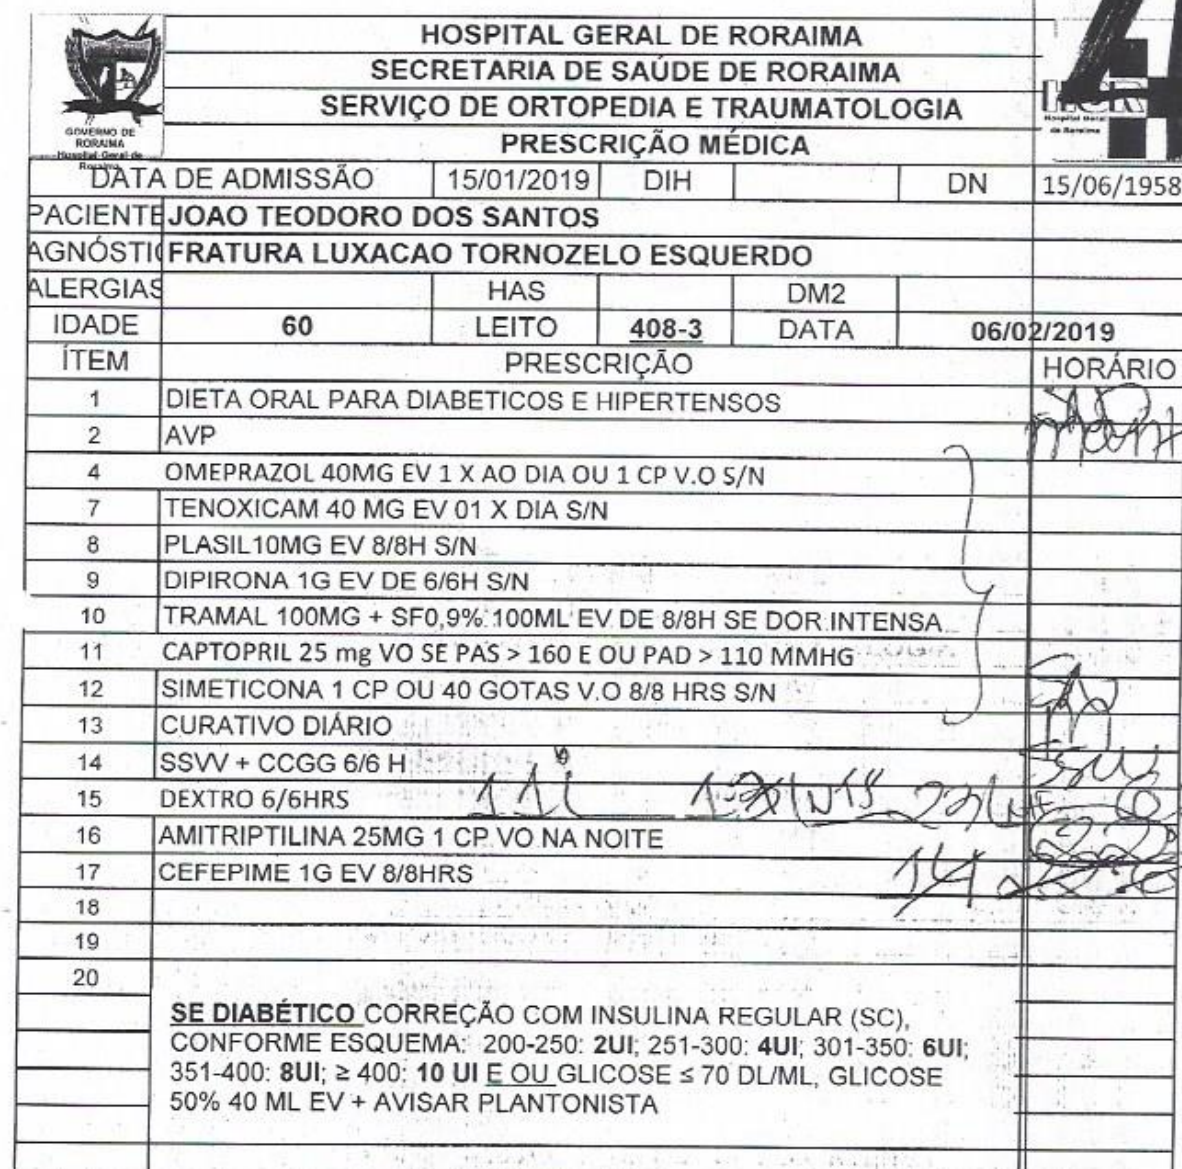 HOSPITAL GERAL DE RORAIMA
SECRETARIA DE SAÚDE DE RORAIMA
SERVIÇO DE ORTOPEDIA E TRAUMATOLOGIA
PRESCRIÇÃO MÉDICA
GOVERNO DE
RORAIMA
Hospital Geral de
Roraima
HGR
Hospital Geral
de Roraima
DATA DE ADMISSÃO 15/01/2019 DIH DN 15/06/1958
PACIENTE JOAO TEODORO DOS SANTOS
AGNÓSTI FRATURA LUXACAO TORNOZELO ESQUERDO
ALERGIAS HAS DM2
IDADE 60 LEITO 408-3 DATA 06/02/2019
ÍTEM PRESCRIÇÃO HORÁRIO
1 DIETA ORAL PARA DIABETICOS E HIPERTENSOS
2 AVP
4 OMEPRAZOL 40MG EV 1 X AO DIA OU 1 CP V.O S/N
7 TENOXICAM 40 MG EV 01 X DIA S/N
8 PLASIL10MG EV 8/8H S/N
9 DIPIRONA 1G EV DE 6/6H S/N
10 TRAMAL 100MG + SF0,9% 100ML EV DE 8/8H SE DOR INTENSA
11 CAPTOPRIL 25 mg VO SE PAS > 160 E OU PAD > 110 MMHG
12 SIMETICONA 1 CP OU 40 GOTAS V.O 8/8 HRS S/N
13 CURATIVO DIÁRIO
14 SSVV + CCGG 6/6 H
15 DEXTRO 6/6HRS
16 AMITRIPTILINA 25MG 1 CP VO NA NOITE
17 CEFEPIME 1G EV 8/8HRS 14
18
19
20
SE DIABÉTICO CORREÇÃO COM INSULINA REGULAR (SC),
CONFORME ESQUEMA: 200-250: 2UI; 251-300: 4UI; 301-350: 6UI;
351-400: 8UI; ≥ 400: 10 UI E OU GLICOSE ≤ 70 DL/ML, GLICOSE
50% 40 ML EV + AVISAR PLANTONISTA